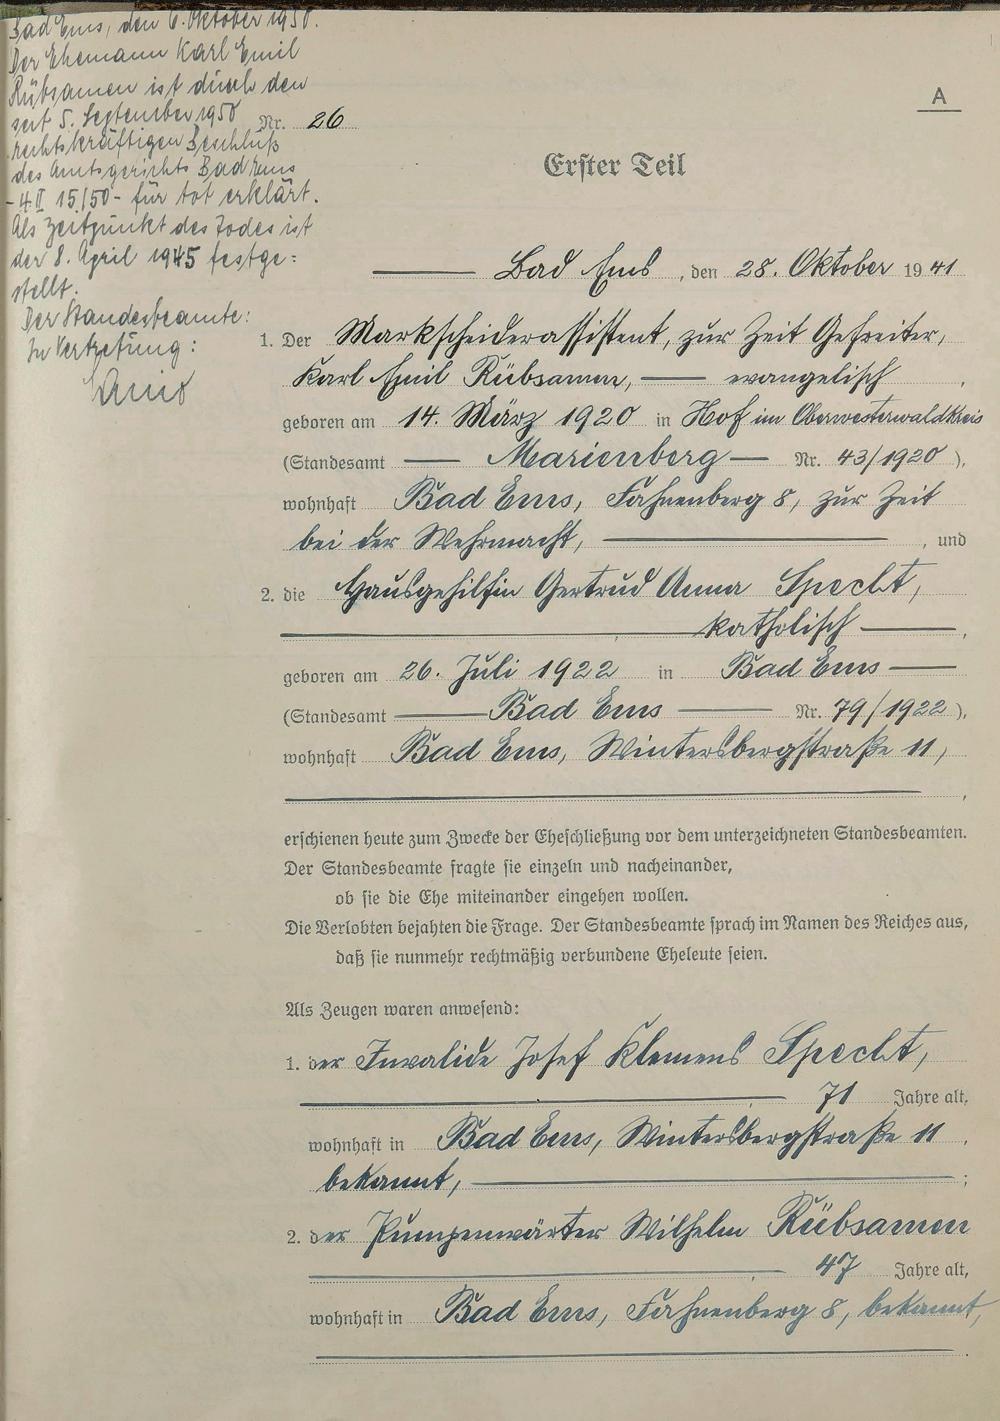 Bad Ems, den 6. Oktober 1950.
Der Ehemann Karl Emil
Rübsamen ist durch den
seit 5. September 1950
rechtskräftigen Beschluß
des Amtsgerichts Bad Ems
- 4 II 15/50 - für tot erklärt.
Als Zeitpunkt des Todes ist
der 8. April 1945 festge=
stellt.
Der Standesbeamte:
In Vertretung:
A
Nr. 26
Erster Teil
Bad Ems, den 28. Oktober 1941
1. Der Markscheiderassistent, zur Zeit Gefreiter,
Karl Emil Rübsamen, — evangelisch,
geboren am 14. März 1920 in Hof im Oberwesterwaldkreis
(Standesamt — Marienberg — Nr. 43/1920),
wohnhaft Bad Ems, Fahnenberg 8, zur Zeit
bei der Wehrmacht, —, und
2. die Hausgehilfin Gertrud Anna Specht,
— katholisch —,
geboren am 26. Juli 1922 in Bad Ems —
(Standesamt — Bad Ems — Nr. 79/1922),
wohnhaft Bad Ems, Wintersbergstraße 11,
—,
erschienen heute zum Zwecke der Eheschließung vor dem unterzeichneten Standesbeamten.
Der Standesbeamte fragte sie einzeln und nacheinander,
ob sie die Ehe miteinander eingehen wollen.
Die Verlobten bejahten die Frage. Der Standesbeamte sprach im Namen des Reiches aus,
daß sie nunmehr rechtmäßig verbundene Eheleute seien.
Als Zeugen waren anwesend:
1. der Invalide Josef Klemens Specht,
— 71 Jahre alt,
wohnhaft in Bad Ems, Wintersbergstraße 11,
bekannt, —;
2. der Pumpenwärter Wilhelm Rübsamen
— 47 Jahre alt,
wohnhaft in Bad Ems, Fahnenberg 8, bekannt,
—.